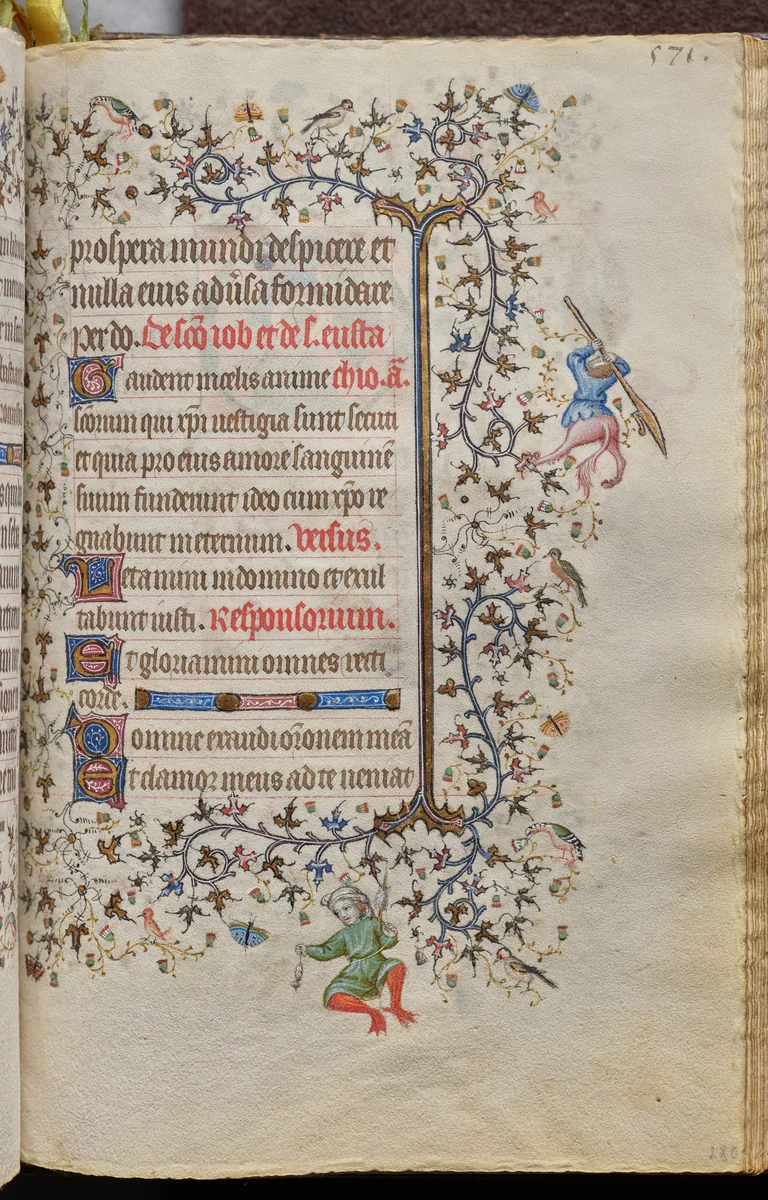 571.
prospera mundi despicere et
nulla eius adu̅sa formidare
per do. De sc̅o iob et de s. eusta
Gaudent in celis anime chio. a̅.
sc̅orum qui xp̅i uestigia sunt secuti
et quia pro eius amore sanguine̅
suum fuderunt ideo cum xp̅o re
gnabunt in eternum. Versus.
Letamini in domino et exul
tabunt iusti. Responsorium.
Et gloriamini omnes recti
corde.
Domine exaudi or̅onem mea̅
Et clamor meus ad te ueniat
280